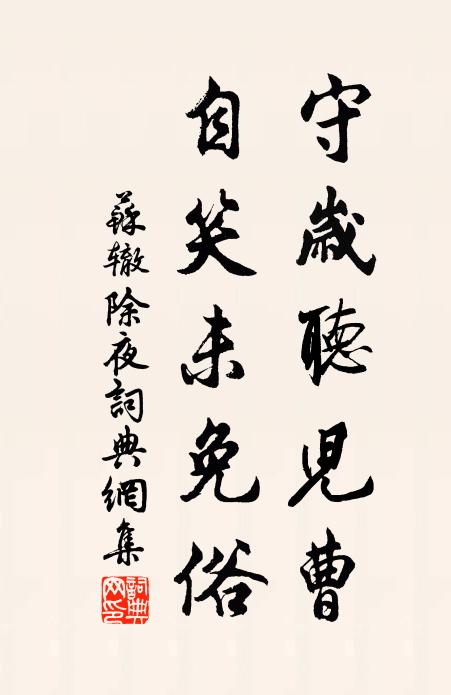 守歲聽兒曹
自笑未免俗
蘇辙除夜詞典網集
詞典網印